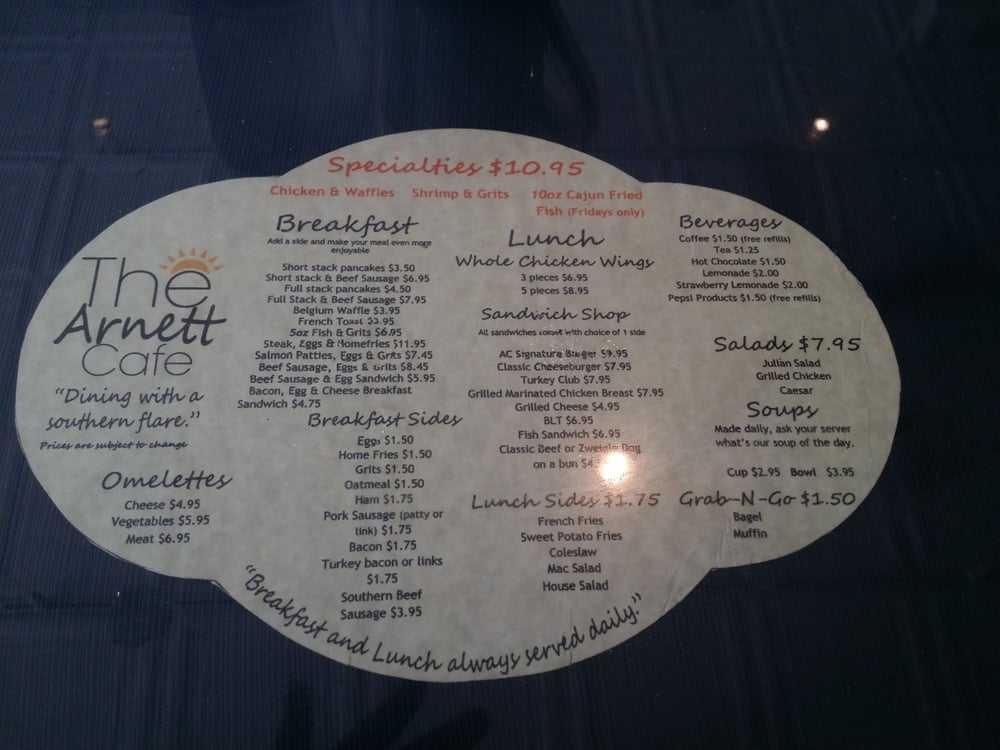 Specialties $10.95
Chicken & Waffles Shrimp & Grits 10oz Cajun Fried
Fish (Fridays only)
The
Arnett
Cafe
"Dining with a
southern flare."
Prices are subject to change
Omelettes
Cheese $4.95
Vegetables $5.95
Meat $6.95
Breakfast
Add a side and make your meal even more
enjoyable
Short stack pancakes $3.50
Short stack & Beef Sausage $6.95
Full stack pancakes $4.50
Full Stack & Beef Sausage $7.95
Belgium Waffle $3.95
French Toast $3.95
5oz Fish & Grits $6.95
Steak, Eggs & Homefries $11.95
Salmon Patties, Eggs & Grits $7.45
Beef Sausage, Eggs & Grits $8.45
Beef Sausage & Egg Sandwich $5.95
Bacon, Egg & Cheese Breakfast
Sandwich $4.75
Breakfast Sides
Eggs $1.50
Home Fries $1.50
Grits $1.50
Oatmeal $1.50
Ham $1.75
Pork Sausage (patty or
link) $1.75
Bacon $1.75
Turkey bacon or links
$1.75
Southern Beef
Sausage $3.95
Lunch
Whole Chicken Wings
3 pieces $6.95
5 pieces $8.95
Sandwich Shop
All sandwiches come with choice of 1 side
AC Signature Burger $9.95
Classic Cheeseburger $7.95
Turkey Club $7.95
Grilled Marinated Chicken Breast $7.95
Grilled Cheese $4.95
BLT $6.95
Fish Sandwich $6.95
Classic Beef or Zweigle Dog
on a bun
Lunch Sides $1.75
French Fries
Sweet Potato Fries
Coleslaw
Mac Salad
House Salad
Beverages
Coffee $1.50 (free refills)
Tea $1.25
Hot Chocolate $1.50
Lemonade $2.00
Strawberry Lemonade $2.00
Pepsi Products $1.50 (free refills)
Salads $7.95
Julian Salad
Grilled Chicken
Caesar
Soups
Made daily, ask your server
what's our soup of the day.
Cup $2.95 Bowl $3.95
Grab-N-Go $1.50
Bagel
Muffin
"Breakfast and Lunch always served daily."